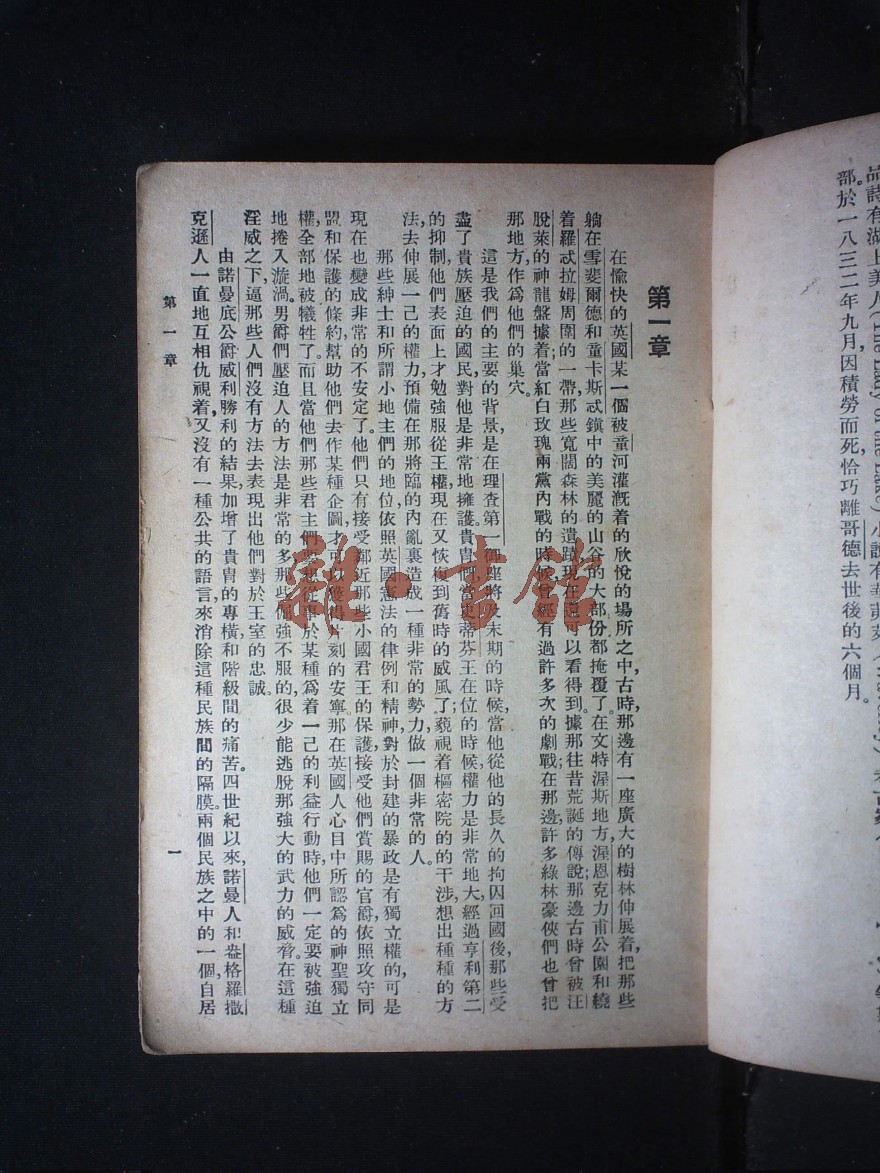 品詩有湖上美人(The Lady of the Lake)小說有
部於一八三二年九月,因積勞而死,恰巧離哥德去世後的六個月。
第一章
在愉快的英國某一個被童河灌漑着的欣悅的場所之中,古時,那邊有一座廣大的樹林伸展着,把那些
躺在雪斐爾德和童卡斯忒鎭中的美麗的山谷的大部份都掩覆了。在文特渥斯地方,渥恩克力甫公園和繞
着羅忒拉姆周圍的一帶,那些寬闊森林的遺蹟,現在還可以看得到。據那往昔荒誕的傳說,那邊古時曾被汪
脫萊的神龍盤據着;當紅白玫瑰兩黨內戰的時候,曾經有過許多次的劇戰在那邊,許多綠林豪俠們也曾把
那地方,作爲他們的巢穴。
這是我們的主要的背景,是在理查第一御座將及末期的時候,當他從他的長久的拘囚回國後,那些受
盡了貴族壓迫的國民,對他是非常地擁護。貴冑們當史蒂芬王在位的時候,權力是非常地大,經過亨利第二
的抑制他們表面上才勉強服從王權,現在又恢復到舊時的威風了;藐視着樞密院的的干涉,想出種種的方
法去伸展一己的權力,預備在那將臨的內亂裏造成一種非常的勢力,做一個非常的人。
那些紳士和所謂小地主們的地位,依照英國憲法的律例和精神,對於封建的暴政是有獨立權的,可是
現在也變成非常的不安定了。他們只有接受鄰近那些小國君王的保護,接受他們賞賜的官爵,依照攻守同
盟和保護的條約,幫助他們去作某種企圖,才可以獲得片刻的安寧,那在英國人心目中所認爲的神聖獨立
權,全部地被犧牲了。而且當他們那些君主們要想從事於某種爲着一己的利益行動時,他們一定要被強迫
地捲入漩渦。男爵們壓迫人的方法是非常的多,那些倔強不服的,很少能逃脫那強大的武力的威脅。在這種
淫威之下,逼那些人們沒有方法去表現出他們對於王室的忠誠。
由諾曼底公爵威利勝利的結果,加增了貴冑的專橫和階級間的痛苦。四世紀以來,諾曼人和盎格羅撒
克遜人一直地互相仇視着,又沒有一種公共的語言,來消除這種民族間的隔膜。兩個民族之中的一個,自居
第一章
一
雜·書館